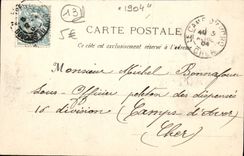 13
"1904"
5€
CARTE POSTALE
Ce côté est exclusivement réservé à l'adresse
LE CAMP D'AVORD
3
04
CHER
Monsieur Michel Bonnafous
Sous-Officier peloton des dispensés
16 division Camps d'Avor
Cher